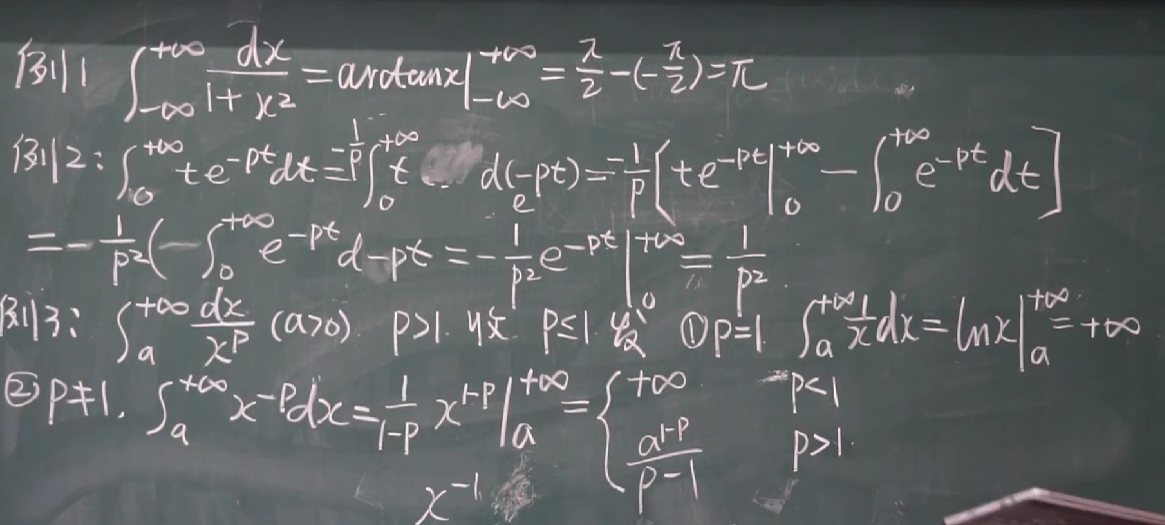 例1 ∫_{-∞}^{+∞} dx/(1+x²) = arctanx|_{-∞}^{+∞} = π/2-(-π/2)=π
例2: ∫_0^{+∞} te^{-pt}dt = -1/p ∫_0^{+∞} t d(-pt) e = -1/p [te^{-pt}|_0^{+∞} - ∫_0^{+∞} e^{-pt} dt]
= -1/p² (-∫_0^{+∞} e^{-pt} d-pt = -1/p² e^{-pt}|_0^{+∞} = 1/p².
例3: ∫_a^{+∞} dx/x^p (a>0). p>1. 收敛 p≤1. 发散 ①p=1. ∫_a^{+∞} 1/x dx = lnx|_a^{+∞} = +∞
②p≠1. ∫_a^{+∞} x^{-p}dx = 1/(1-p) x^{1-p}|_a^{+∞} = { +∞ p<1
a^{1-p}/(p-1) p>1.
x^{-1}